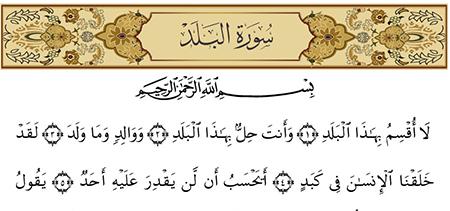 سُورَةُ البَلَدِ
بِسْمِ ٱللَّهِ ٱلرَّحْمَٰنِ ٱلرَّحِيمِ
لَا أُقْسِمُ بِهَٰذَا الْبَلَدِ ﴿١﴾ وَأَنتَ حِلٌّ بِهَٰذَا الْبَلَدِ ﴿٢﴾ وَوَالِدٍ وَمَا وَلَدَ ﴿٣﴾ لَقَدْ
خَلَقْنَا الْإِنسَٰنَ فِى كَبَدٍ ﴿٤﴾ أَيَحْسَبُ أَن لَّن يَقْدِرَ عَلَيْهِ أَحَدٌ ﴿٥﴾ يَقُولُ